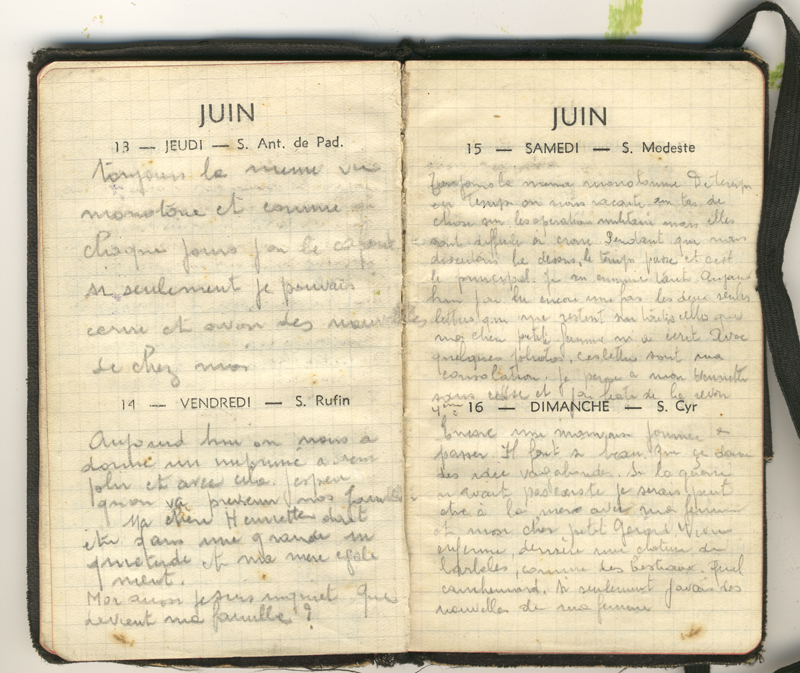 JUIN
13 — JEUDI — S. Ant. de Pad.
toujours la meme vie
monotone et comme
chaque jours j'ai le cafard
si seulement je pouvais
ecrire et avoir des nouvelles
de chez moi
14 — VENDREDI — S. Rufin
Aujourd hui on nous a
donné un imprimé a rem
plir et avec cela j'espere
quon va prevenir nos familles
Ma chere Henriette doit
etre dans une grande in
quietude et ma mere egale
ment.
Moi aussi je suis inquiet que
devient ma famille ?
JUIN
15 — SAMEDI — S. Modeste
Toujours la meme monotonie De temps
en temps on nous raconte un tas de
chose sur les operation militaire mais elles
sont difficile a croire. Pendant que nous
discutons la dessus, le temps passe et c'est
le principal. Je m ennuie tant. Aujour
hui j'ai lu encore une fois les deux seules
lettres qui me restent sur toutes celles que
ma chere petite femme m a ecrit Avec
quelques photos, ces lettre sont ma
consolation. Je pense a mon Henriette
sans cesse et j'ai hate de la revoir
16 — DIMANCHE — S. Cyr
Encore une mauvaise journee a
passer. Il fait si beau. que ça donne
des idee vagabondes. Si la guerre
n avait pas existe je serais peut
etre a la mer avec ma femme
et mon cher petit Gerard. Vivre
enfermé, derriere une cloture de
barbelés, comme des bestiaux. quel
cauchemard. Si seulement j'avais des
nouvelles de ma femme